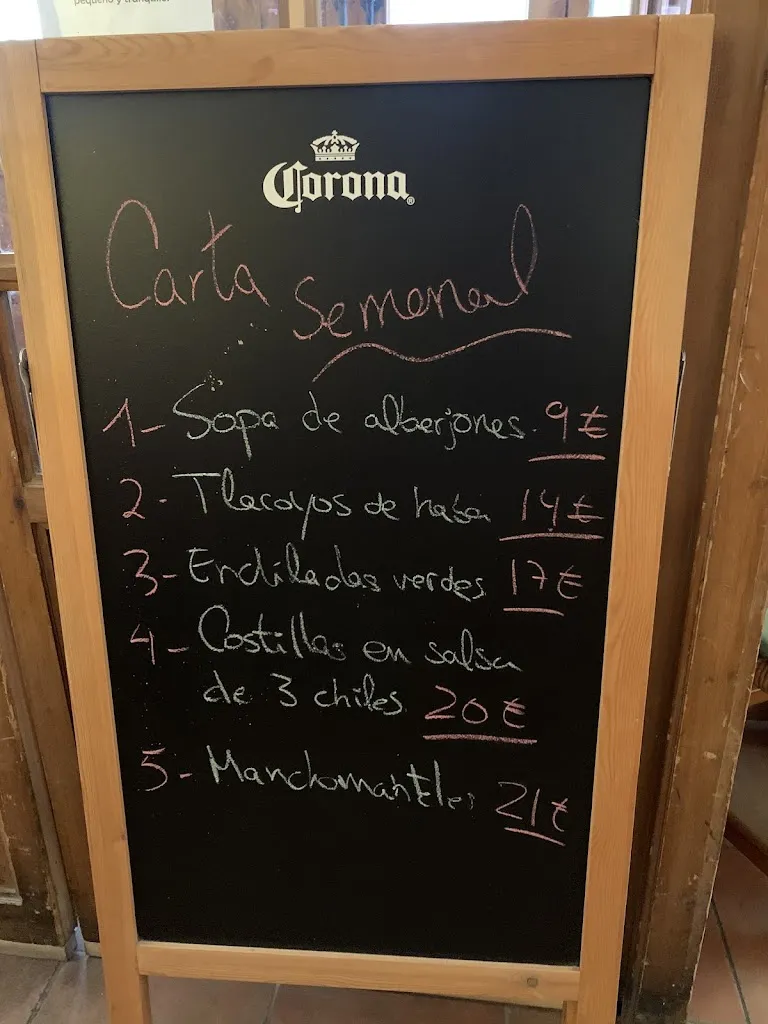 pequeño y tranquilo.
Corona®
Carta Semanal
1- Sopa de alberjones. 9€
2- Tlacoyos de haba 14€
3- Enchiladas verdes 17€
4- Costillas en salsa
de 3 chiles 20€
5- Manchomanteles 21€